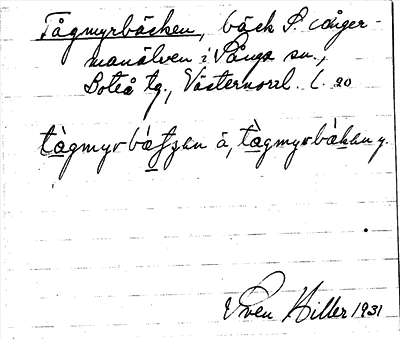 Tågmyrbäcken, bäck t. Ånger-
manälven i Sånga sn.,
Boteå tg., Västernorrl. l. 20
tàgmyrbätjen ä, tàgmyrbäken y.
Sven Hiller 1931